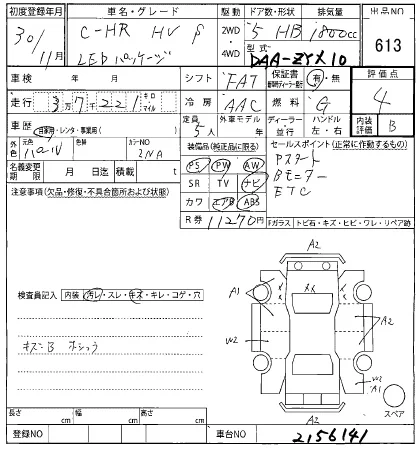 初度登録年月
車名・グレード
駆動
ドア数・形状
排気量
出品NO
30/11月
C-HR HV
LEDパッケージ
2WD
・
4WD
5 HB
1800cc
613
型式
DAA-ZYX10
車検 年 月
シフト
FAT
保証書
新車時ディーラー発行
有・無
評価点
4
走行
37221
キロ・マイル
冷房
AAC
燃料
G
車歴
自家用・レンタ・事業用( )
定員
5人
外車モデル
年
ディーラー・並行
ハンドル
左・右
内装評価
B
外色
元色
パール
色替
カラーNO
2NA
装備品(純正品に限る)
セールスポイント(正常に作動するもの)
名義変更期限 月 日迄
積載 t
PS PW AW
Pスタート
SR TV ナビ
Bモニター
カワ エアB ABS
ETC
注意事項(欠品・修復・不具合箇所および状態)
R券
11270円
Fガラス トビ石・キズ・ヒビ・ワレ・リペア跡
A2
検査員記入
内装 汚レ・スレ・キズ・キレ・コゲ・穴
A1
A2
W2
キズB
W2
A1
スペア
A2
長さ cm
幅 cm
高さ cm
登録NO
車台NO
2156141